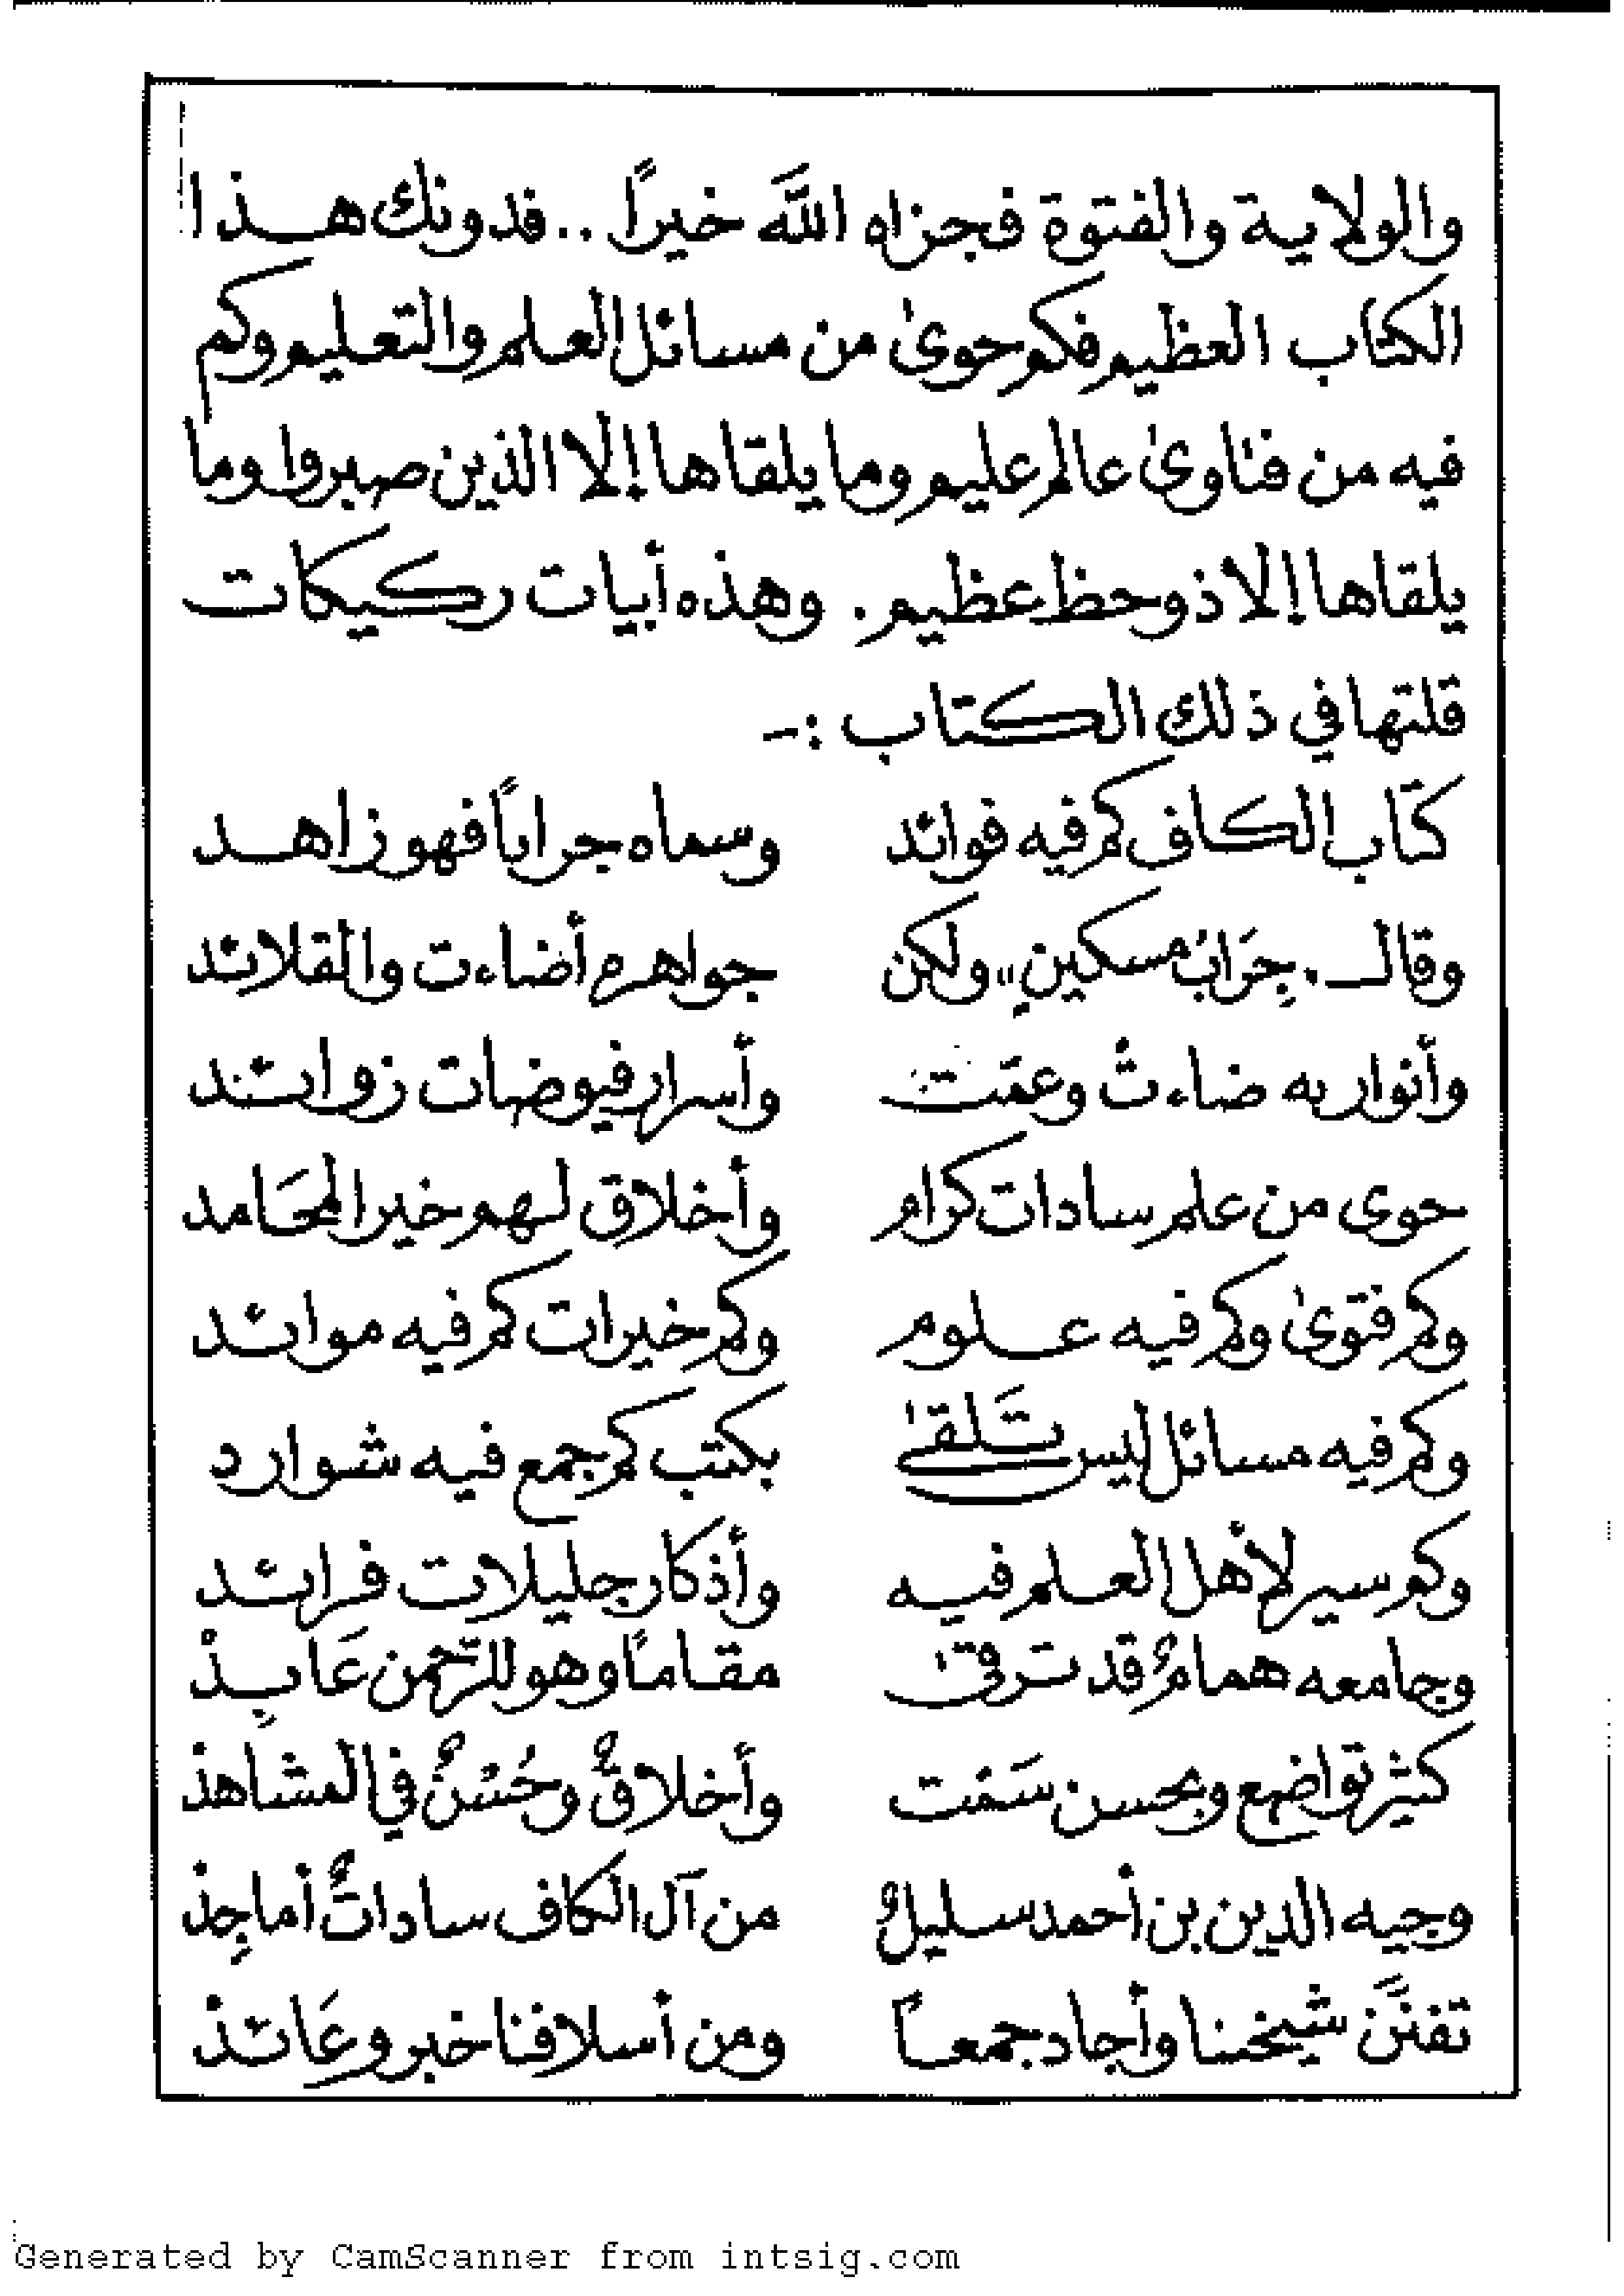 والولاية والفتوة فجزاه اللَّه خيراً .. فدونك هذا
الكتاب العظيم فكم حوىٰ من مسائل العلم والتعليم وكم
فيه من فتاوىٰ عالم عليم وما يلقاها إلا الذين صبروا وما
يلقاها إلا ذوحظ عظيم . وهذه أبيات ركيكات
قلتها في ذلك الكتاب :-
كتاب الكاف كم فيه فوائد وسماه جراباً فهو زاهد
وقال . جِرَابُ مسكينٍ ,, ولكن جواهرم أضاءت والقلائد
وأنوار به ضاءتْ وعمّت وأسرار فيوضات زوائد
حوى من علم سادات كرام وأخلاق لهم خير المحَامد
وكم فتوىٰ وكم فيه علوم وكم خيرات كم فيه موائد
وكم فيه مسائل ليس تَلقىٰ بكتب كم جمع فيه شوارد
وكم سير لأهل العلم فيه وأذكار جليلات فرائد
وجامعه همامٌ قد ترقىٰ مقاماً وهو للرّحمن عَابِدْ
كثير تواضع وبحسن سَمْت وأخلاقٌ وحُسْنٌ في المشاهدْ
وجيه الدين بن أحمد سليلٌ من آل الكاف ساداتٌ أماجِدْ
تفنَّن شيخنا وأجاد جمعاً ومن أسلافنا خبر وعَائدْ
Generated by CamScanner from intsig.com